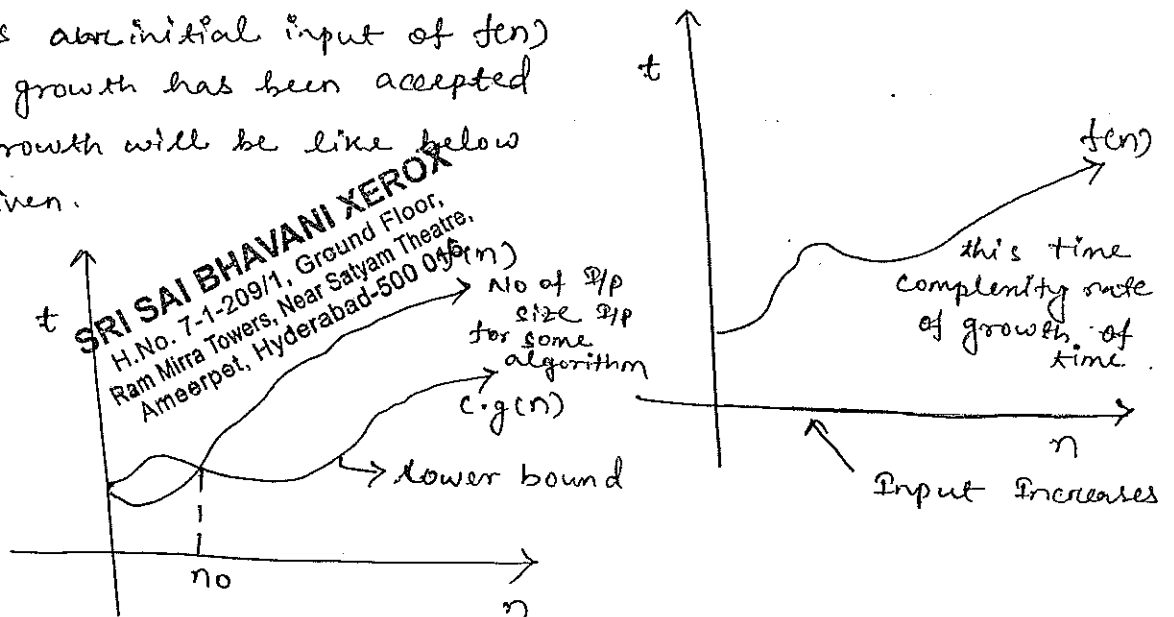 s are initial input of f(n)
growth has been accepted
rowth will be like below
iven.
SRI SAI BHAVANI XEROX
H.No. 7-1-209/1, Ground Floor,
Ram Mirra Towers, Near Satyam Theatre,
Ameerpet, Hyderabad-500 016
t
(n)
No of I/p
size I/p
for some
algorithm
c.g(n)
lower bound
n0
n
t
f(n)
this time
complenity rate
of growth of
time.
n
Input Increases